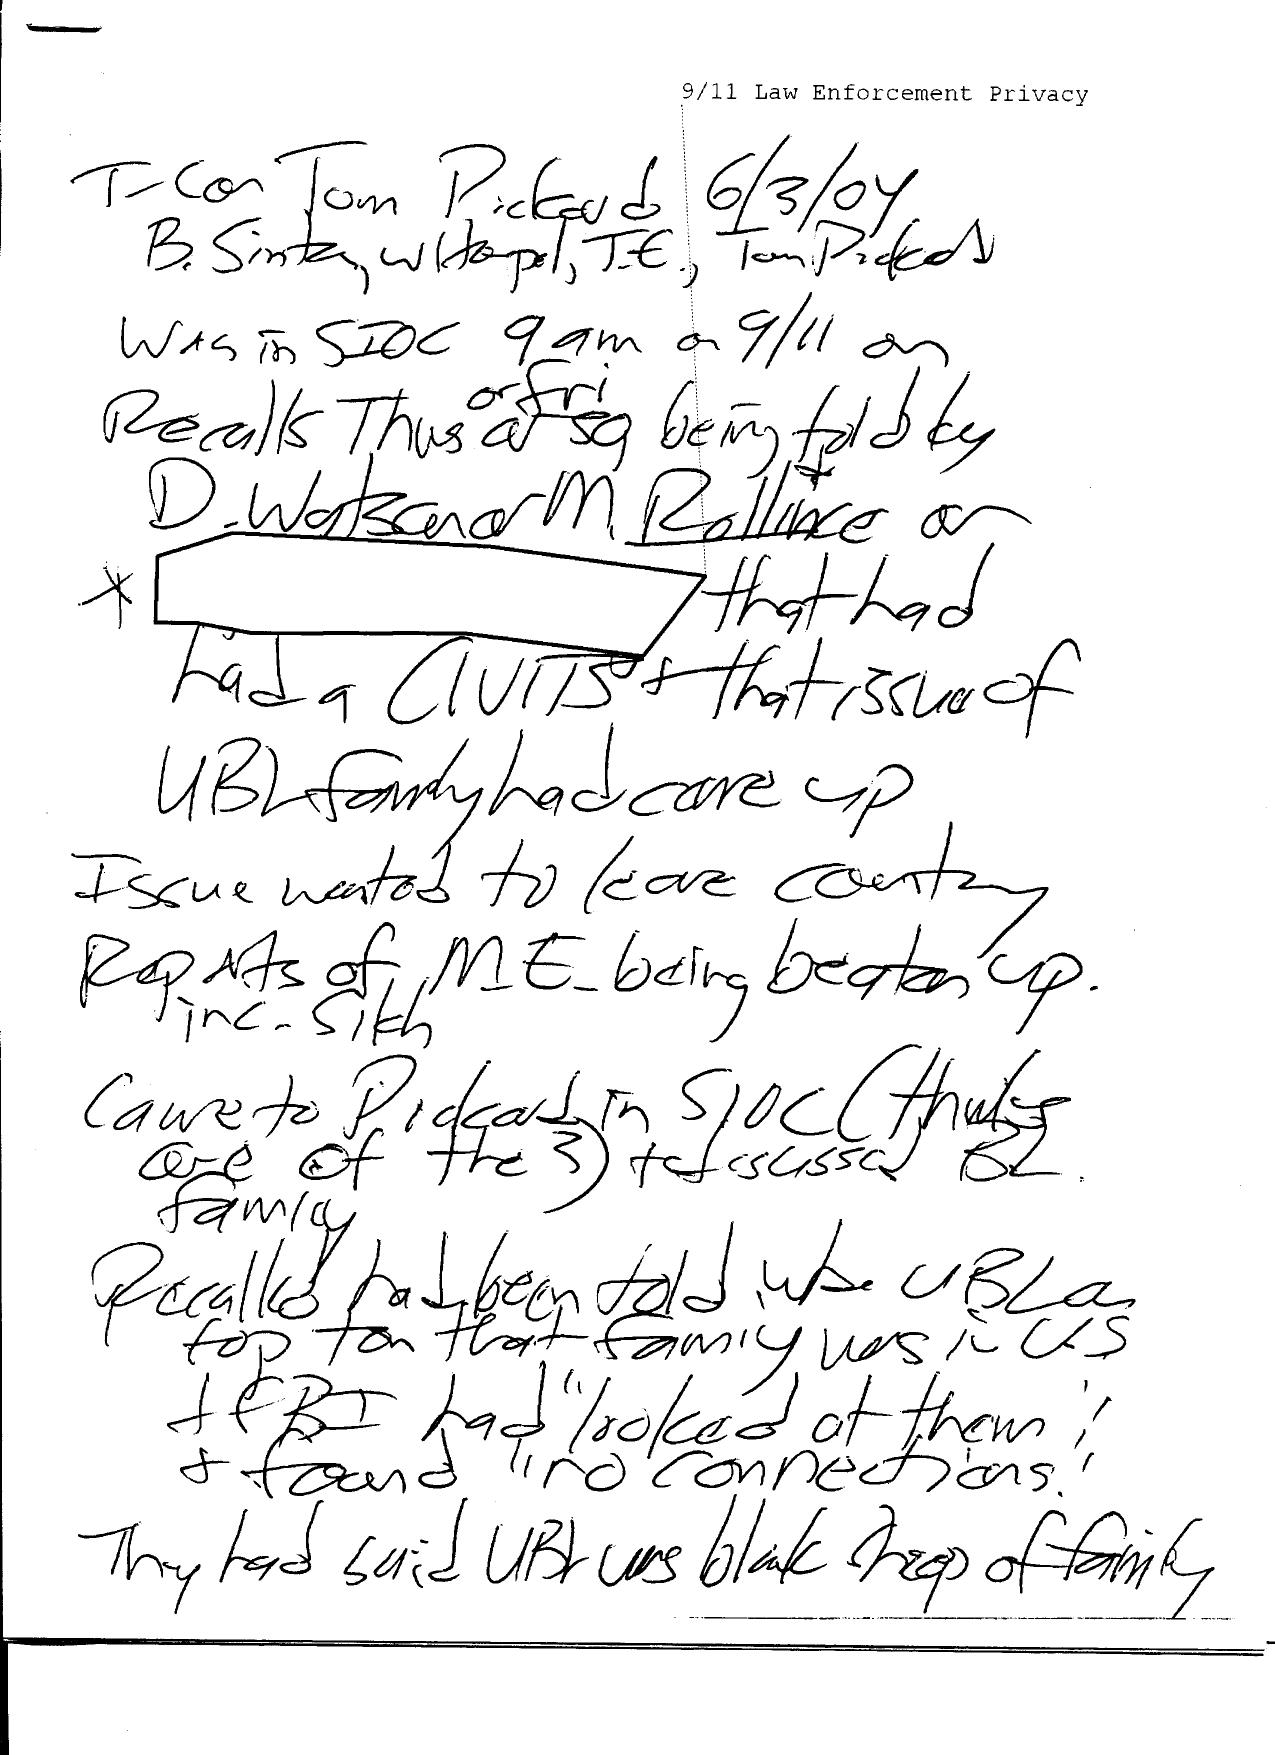 9/11 Law Enforcement Privacy
T-Con Tom Pickard 6/3/04
B. Tom Pickard
Was in SIOC 9 am on 9/11 on
or Fri
Recalls Thus at being told by
D. Watson or M. Rollince or
* that had
had a CIVITS & that issue of
UBL family had come up
Issue wanted to leave country
Reports of M.E. being beaten up.
inc. Sikh
Came to Pickard in SIOC (thinks
one of the 3) & discussed BL
family
Recalled had been told when UBL on
top ten that family was in US
& FBI had "looked at them"
& found "no connections."
They had said UBL was black sheep of family